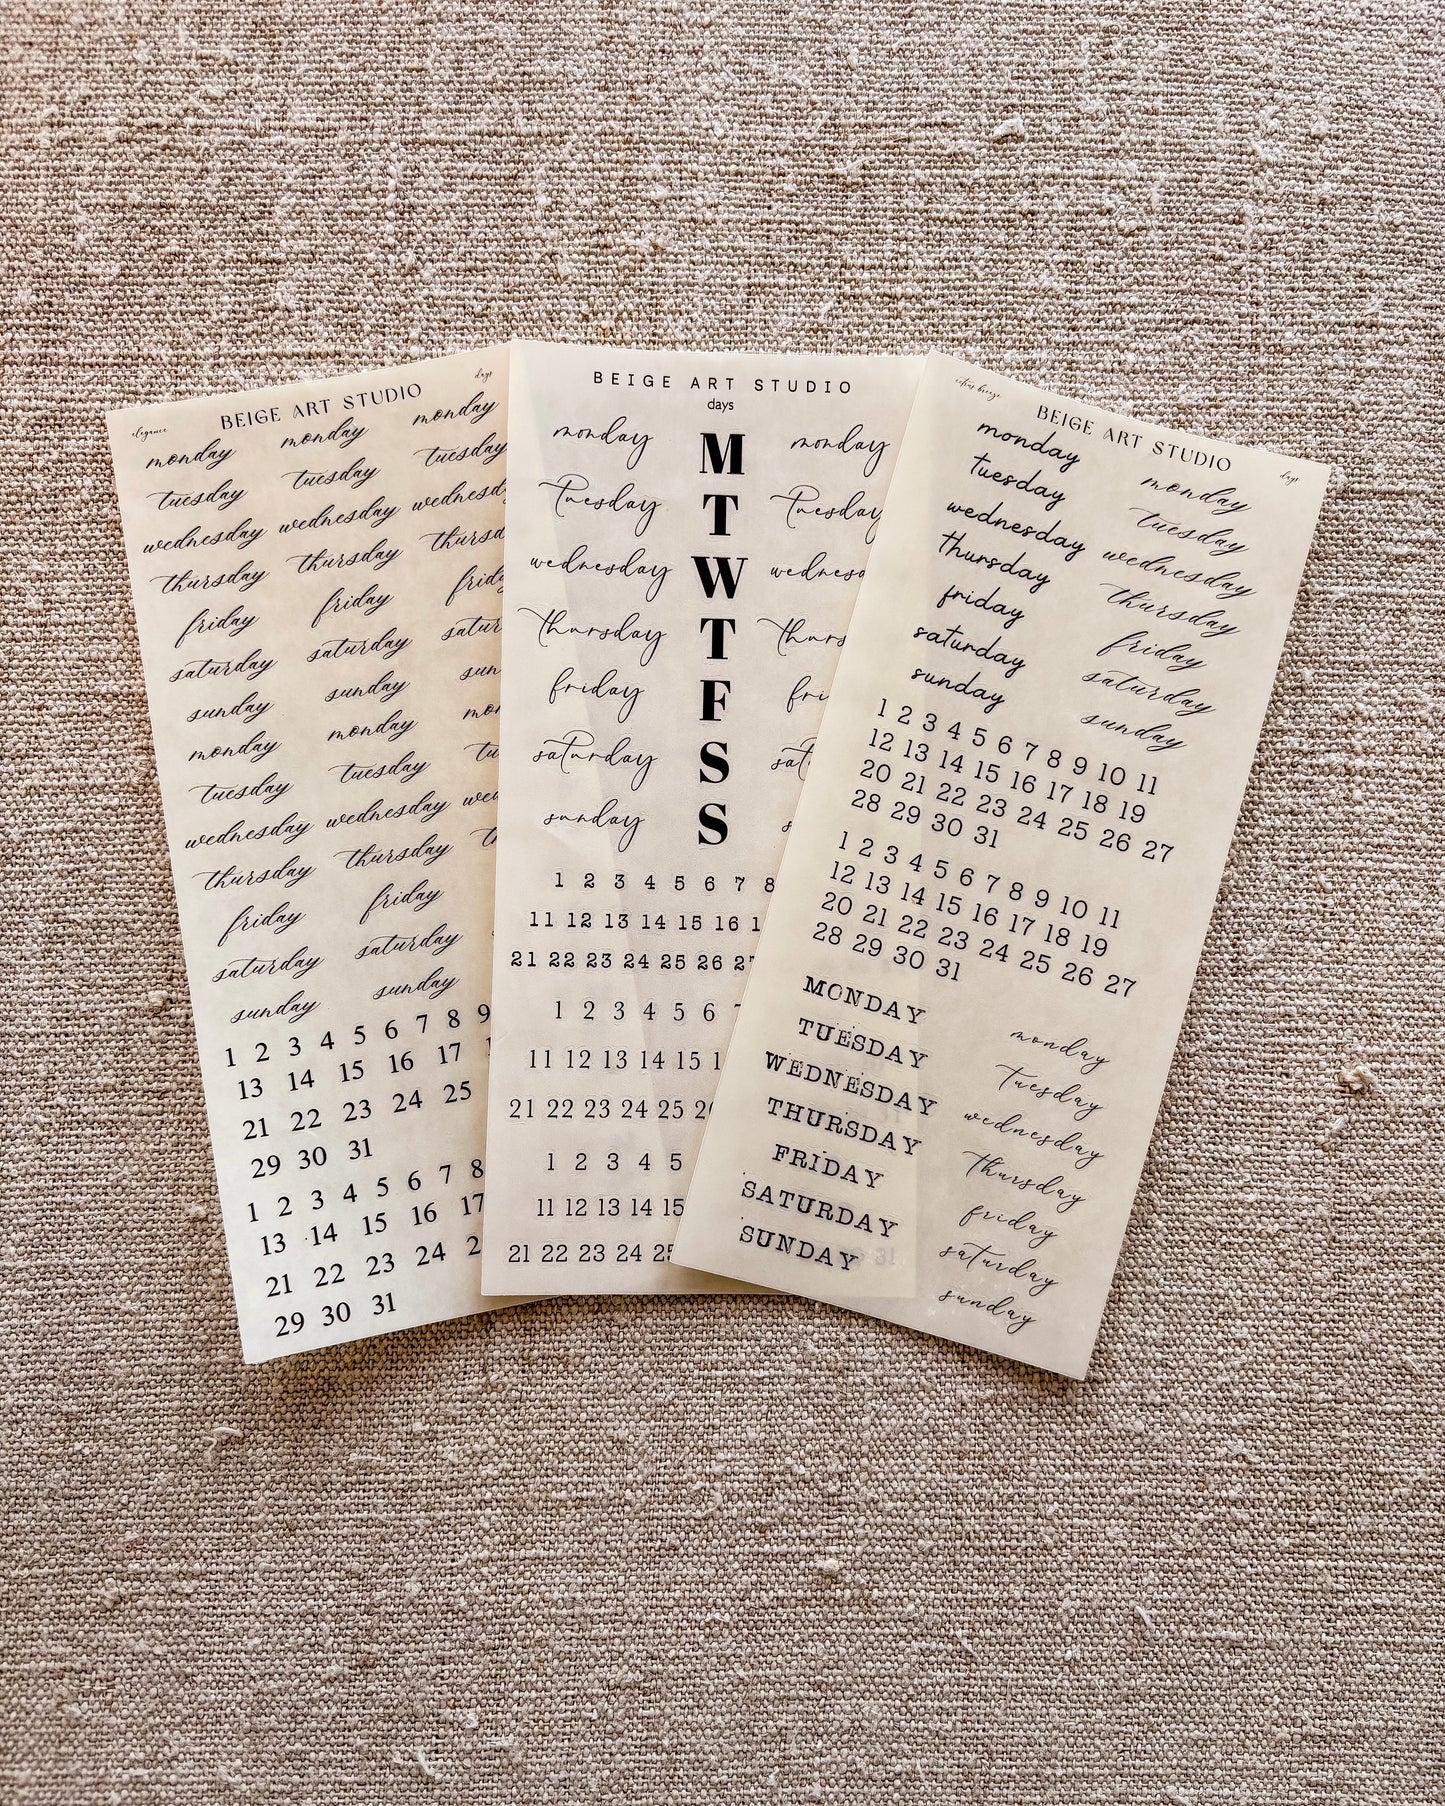 elegance BEIGE ART STUDIO days
monday monday monday
tuesday tuesday tuesday
wednesday wednesday wednesd
thursday thursday thursd
friday friday frid
saturday saturday satur
sunday sunday sun
monday monday mon
tuesday tuesday tu
wednesday wednesday wed
thursday thursday th
friday friday
saturday saturday
sunday sunday
1 2 3 4 5 6 7 8 9
13 14 15 16 17
21 22 23 24 25
29 30 31
1 2 3 4 5 6 7 8
13 14 15 16 17
21 22 23 24 2
29 30 31
BEIGE ART STUDIO
days
monday M monday
Tuesday T Tuesday
wednesday W wednesd
thursday T thurs
friday F fri
saturday S sat
sunday S s
1 2 3 4 5 6 7 8
11 12 13 14 15 16 1
21 22 23 24 25 26 27
1 2 3 4 5 6 7
11 12 13 14 15 1
21 22 23 24 25 26
1 2 3 4 5
11 12 13 14 15
21 22 23 24 25
citrus breeze BEIGE ART STUDIO days
monday monday
tuesday tuesday
wednesday wednesday
thursday thursday
friday friday
saturday saturday
sunday sunday
1 2 3 4 5 6 7 8 9 10 11
12 13 14 15 16 17 18 19
20 21 22 23 24 25 26 27
28 29 30 31
1 2 3 4 5 6 7 8 9 10 11
12 13 14 15 16 17 18 19
20 21 22 23 24 25 26 27
28 29 30 31
MONDAY monday
TUESDAY Tuesday
WEDNESDAY wednesday
THURSDAY Thursday
FRIDAY friday
SATURDAY saturday
SUNDAY sunday